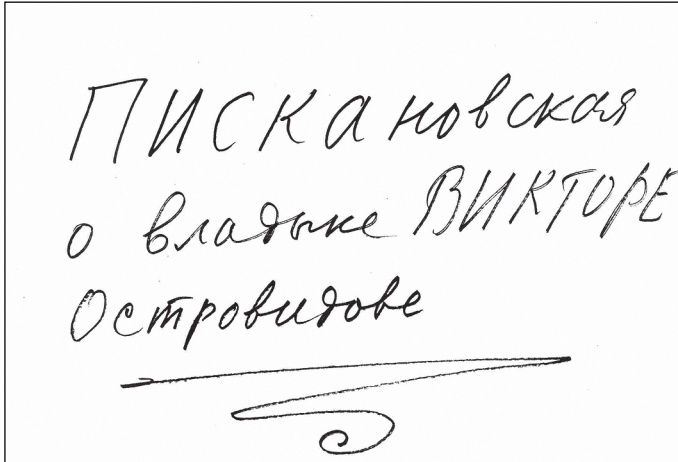 ПИСКАновская
о владыке ВИКТОРЕ
Островидове